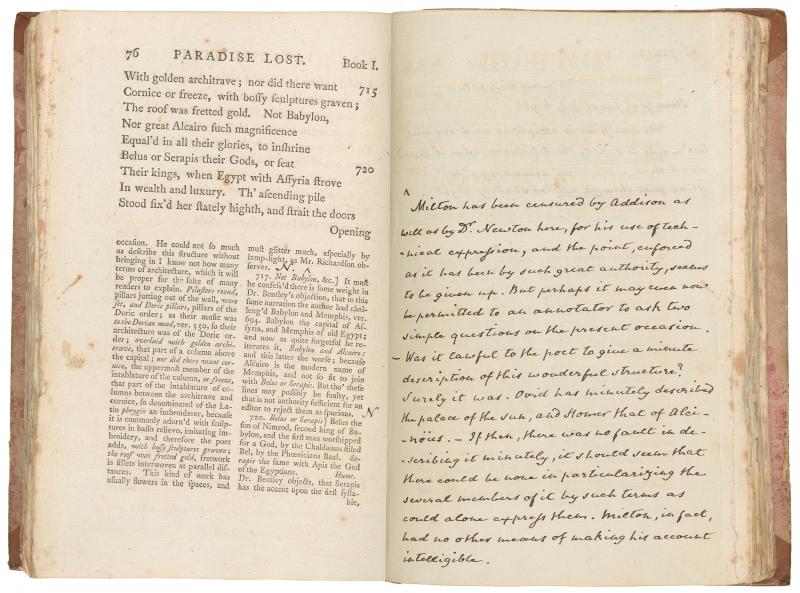 76 PARADISE LOST. Book I.
With golden architrave; nor did there want 715
Cornice or freeze, with boſſy ſculptures graven;
The roof was fretted gold. Not Babylon,
Nor great Alcairo ſuch magnificence
Equal'd in all their glories, to inſhrine
Belus or Serapis their Gods, or ſeat 720
Their kings, when Egypt with Aſſyria ſtrove
In wealth and luxury. Th' aſcending pile
Stood fix'd her ſtately highth, and ſtrait the doors
Opening
occaſion. He could not ſo much
as deſcribe this ſtructure without
bringing in I know not how many
terms of architecture, which it will
be proper for the ſake of many
readers to explain. Pilaſters round,
pillars jutting out of the wall, were
ſet, and Doric pillars, pillars of the
Doric order; as their muſic was
to the Dorian mood, ver. 550, ſo their
architecture was of the Doric or-
der; overlaid with golden archi-
trave, that part of a column above
the capital; nor did there want cor-
nice, the uppermoſt member of the
intablature of the column, or freeze,
that part of the intablature of co-
lumns between the architrave and
cornice, ſo denominated of the La-
tin phrygio an embroiderer, becauſe
it is commonly adorn'd with ſculp-
tures in baſſo relievo, imitating im-
broidery, and therefore the poet
adds, with boſſy ſculptures graven;
the roof was fretted gold, fretwork
is fillets interwoven at parallel diſ-
tances. This kind of work has
uſually flowers in the ſpaces, and
muſt glitter much, eſpecially by
lamp-light, as Mr. Richardſon ob-
ſerves. N. ^
717. Not Babylon, &c.] It muſt
be confeſs'd there is ſome weight in
Dr. Bentley's objection, that in this
ſame narration the author had chal-
leng'd Babylon and Memphis, ver.
694. Babylon the capital of Aſ-
ſyria, and Memphis of old Egypt;
and now as quite forgetful he re-
iterates it, Babylon and Alcairo:
and this latter the worſe; becauſe
Alcairo is the modern name of
Memphis, and not ſo fit to join
with Belus or Serapis. But tho' theſe
lines may poſſibly be faulty, yet
that is not authority ſufficient for an
editor to reject them as ſpurious. N
720. Belus or Serapis] Belus the
ſon of Nimrod, ſecond king of Ba-
bylon, and the firſt man worſhipped
for a God, by the Chaldæans ſtiled
Bel, by the Phœnicians Baal. Se-
rapis the ſame with Apis the God
of the Egyptians. Hume.
Dr. Bentley objects, that Serapis
has the accent upon the firſt ſylla-
ble,
^
Milton has been censured by Addison as
well as by Dr. Newton here, for his use of tech-
-nical expression, and the point, enforced
as it has been by such great authority, seems
to be given up. But perhaps it may even now
be permitted to an annotator to ask two
simple questions on the present occasion.
– Was it lawful to the poet to give a minute
description of this wonderful structure?
Surely it was. Ovid has minutely described
the palace of the Sun, and Homer that of Alci-
-nöus. – If then, there was no fault in de-
-scribing it minutely, it should seem that
there could be none in particularizing the
several members of it by such terms as
could alone express them. Milton, in fact,
had no other means of making his account
intelligible.